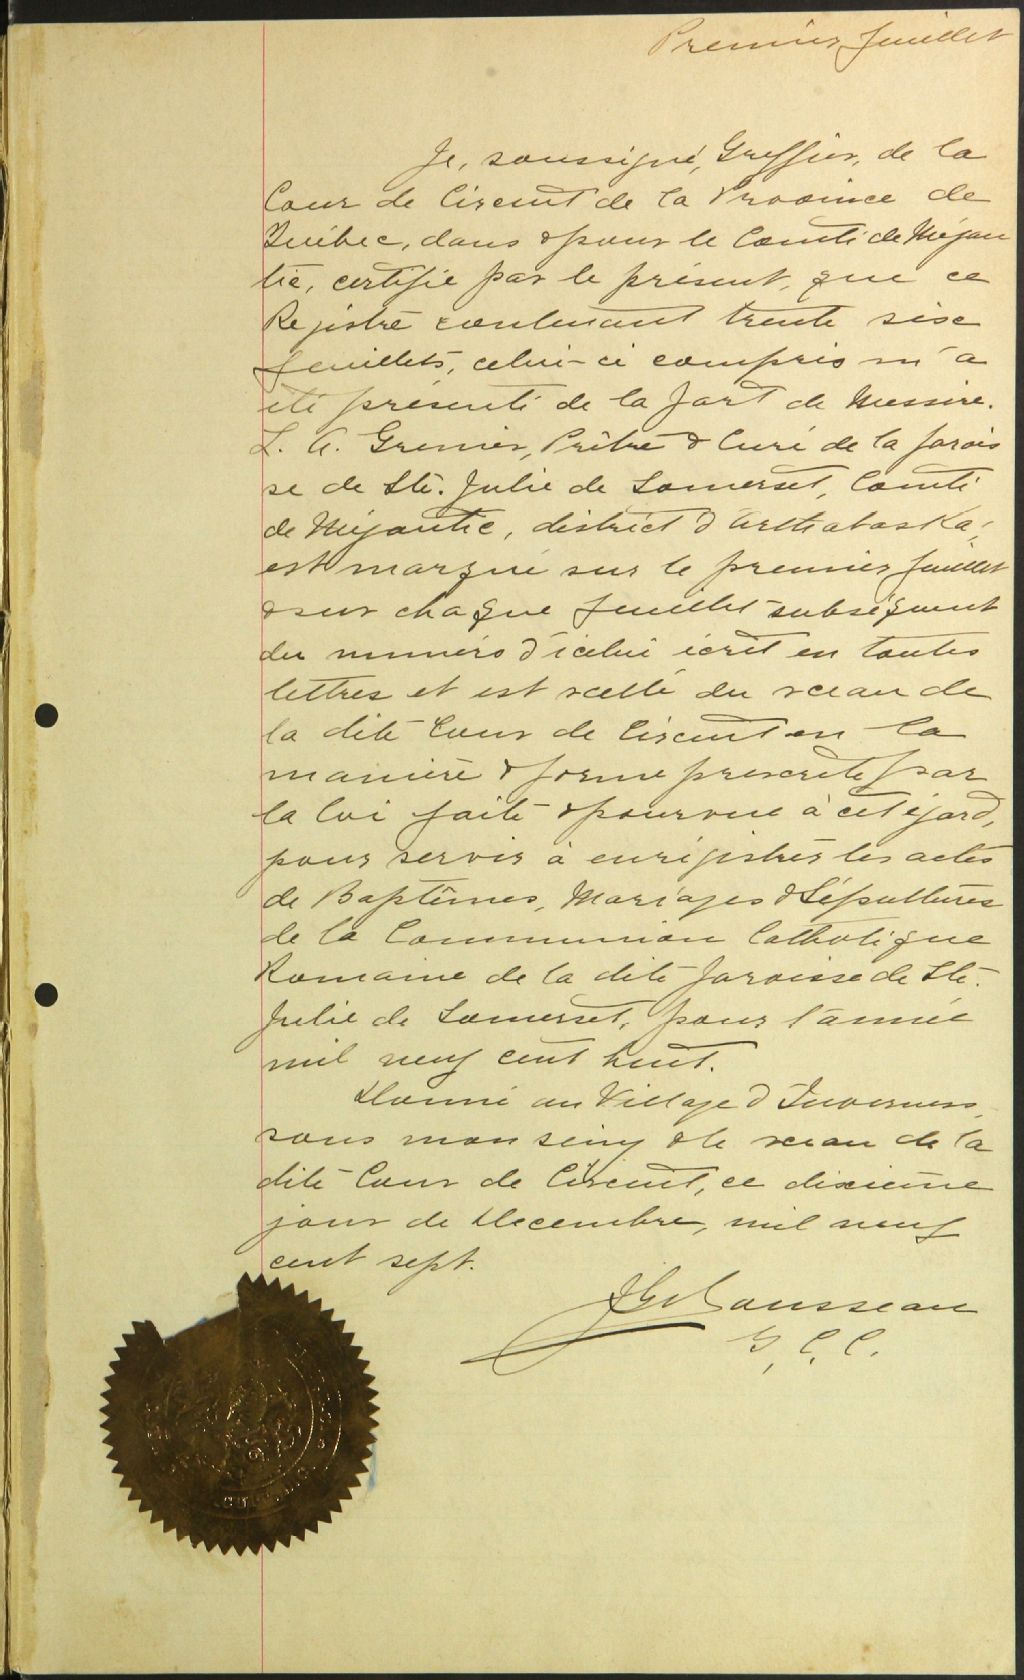 Premier feuillet
Je, soussigné, Greffier, de la
Cour de Circuit de la Province de
Québec, dans & pour le Comté de Mégan
tic, certifie par le présent, que ce
Registre contenant trente six
feuillets, celui-ci compris m'a
été présenté de la part de Messire.
L. A. Grenier, Prêtre & Curé de la parois
se de Ste. Julie de Somerset, Comté
de Mégantic, district d'Arthabaska,
est marqué sur le premier feuillet
& sur chaque feuillet subséquent
du numéro d'icelui écrit en toutes
lettres et est scellé du sceau de
la dite Cour de Circuit en la
manière & forme prescrite par
la loi faite & pourvue à cet égard,
pour servir à enrégistrer les actes
de Baptêmes, Mariages & Sépultures
de la Communion Catholique
Romaine de la dite paroisse de Ste.
Julie de Somerset, pour l'année
mil neuf cent huit.
Donné au Village d'Inverness,
sous mon seing & le sceau de la
dite Cour de Circuit, ce dixième
jour de Decembre, mil neuf
cent sept.
Rousseau
G. C. C.